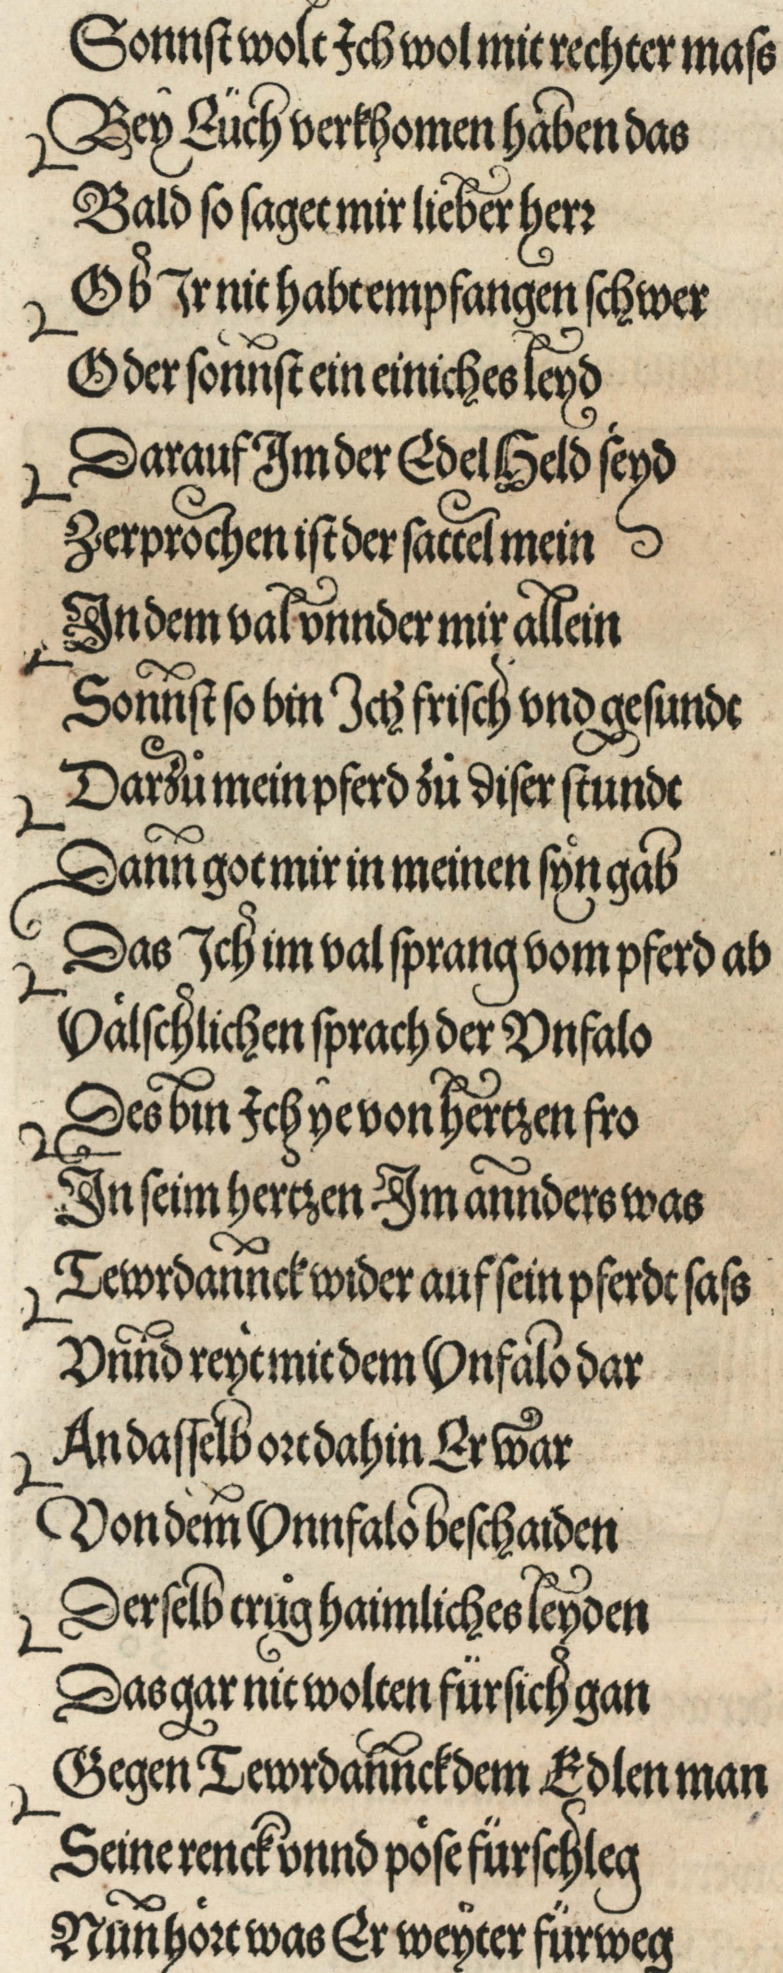 Sonnst wolt Ich wol mit rechter mass
Bey Eüch verkhomen haben das
Bald so saget mir lieber herr
Ob Ir nit habt empfangen schwer
Oder sonnst ein einiches leyd
Darauf Im der Edel Held seyd
Zerprochen ist der sattel mein
In dem val vnnder mir allein
Sonnst so bin Ich frisch vnd gesundt
Darzů mein pferd zů diser stundt
Dann got mir in meinen syn gab
Das Ich im val sprang vom pferd ab
Välschlichen sprach der Vnfalo
Des bin Ich ye von hertzen fro
In seim hertzen Im annders was
Tewrdannck wider auf sein pferdt sass
Vnnd reyt mit dem Vnfalo dar
An dasselb ort dahin Er war
Von dem Vnnfalo beschaiden
Derselb trůg haimliches leyden
Das gar nit wolten für sich gan
Gegen Tewrdannck dem Edlen man
Seine renck vnnd pöse fürschleg
Nun hört was Er weyter fürweg